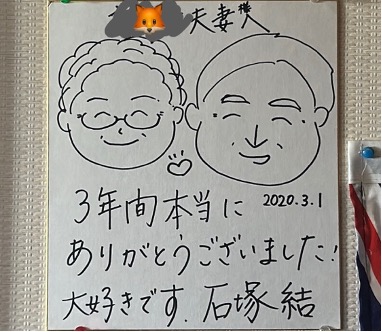 夫妻様
3年間本当に
2020.3.1
ありがとうございました!
大好きです. 石塚 結